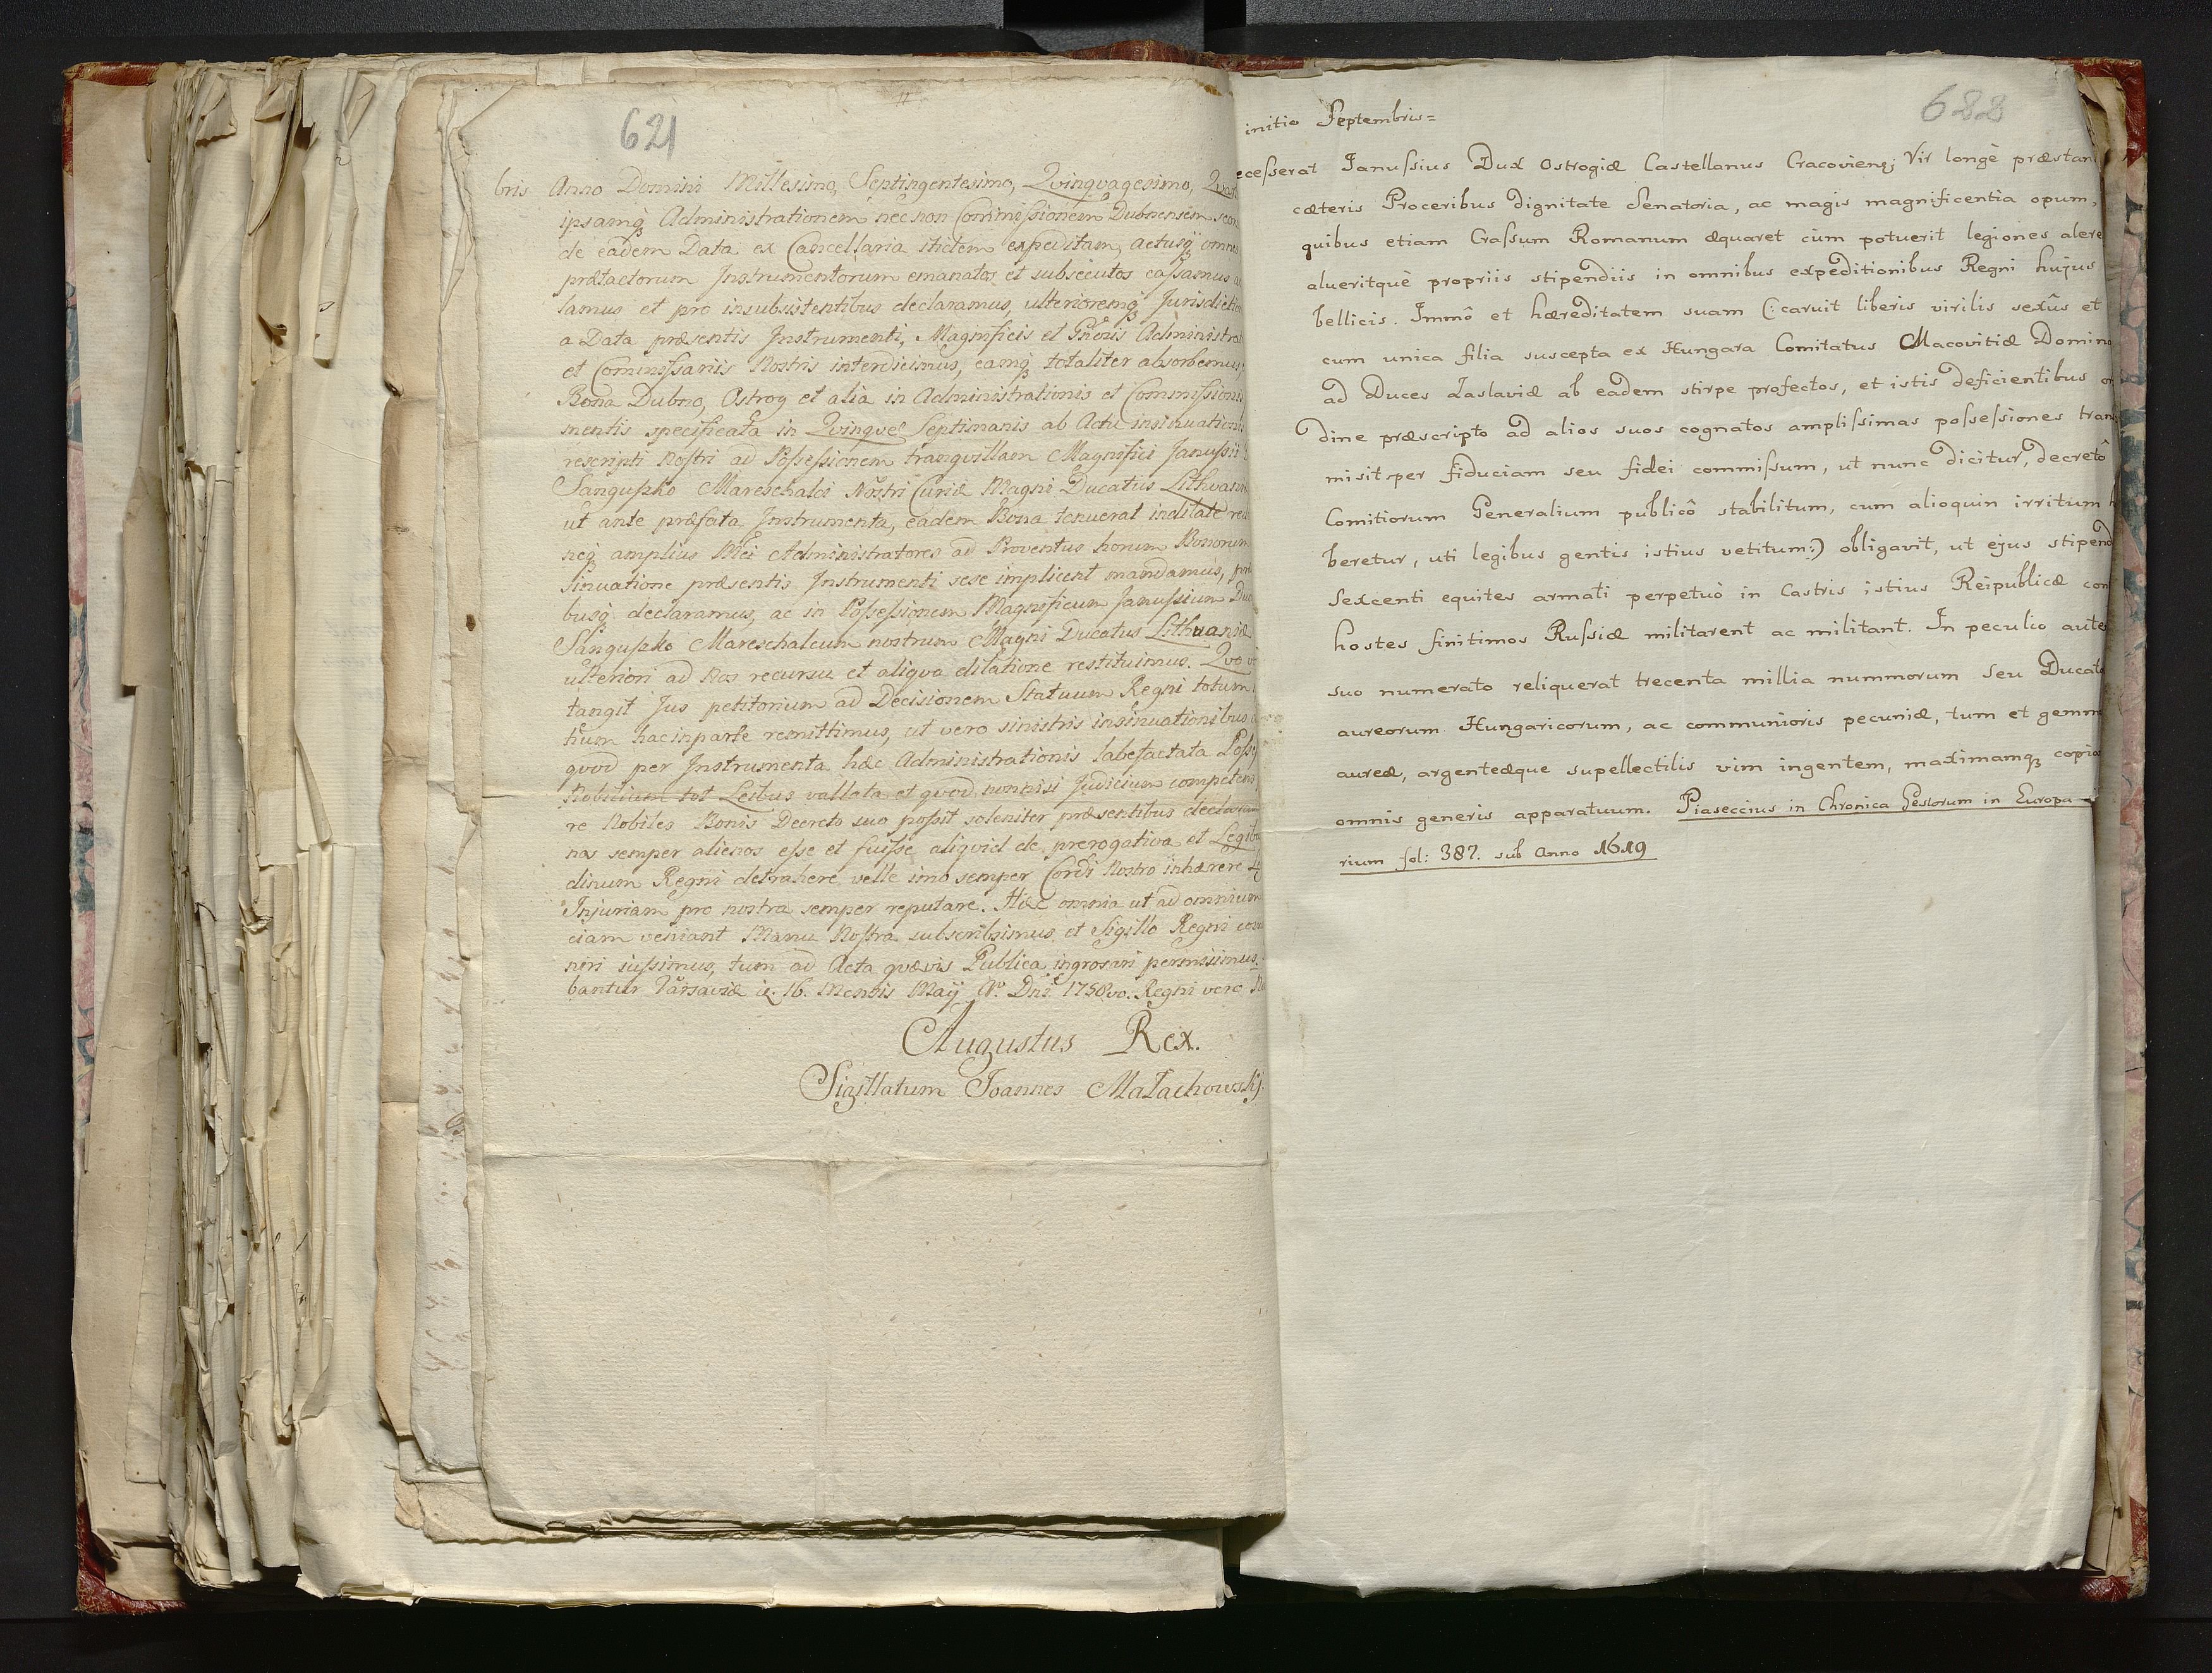 621
bris Anno Domini Millesimo, Septingentesimo, Qvinqvagesimo,
ipsamq Administrationem nec non Commissionem Dubnensem
de eadem Data ex Cancellaria itidem expeditam, actusq omnes
prætactorum Instrumentorum emanatos et subsecutos cassamus
lamus et pro insubsistentibus declaramus, ulterioremq Jurisdictio
a Data præsentis Instrumenti, Magnificis et Gnõsis Administrat
et Commissariis Nostris interdicimus, eamq totaliter absorbemus,
Bona Dubno, Ostrog et alia in Administrationis et Commissionis
mentis specificata in Qvinqve Septimanis ab Actu insinuationis
rescripti Nostri ad Possessionem tranqvillam Magnifici Janussii
Sanguszko Mareschalci Nostri Curiæ Magni Ducatus Lithvaniæ
ut ante præfata Instrumenta, eadem Bona tenuerat
neq amplius Administratores ad Proventus horum Bonorum
sinuatione præsentis Instrumenti sese implicent mandamus,
busq declaramus, ac in Possessionem Magnificum Janussium Du
Sanguszko Mareschalcum nostrum Magni Ducatus Lithuaniæ
ulteriori ad Nos recursu et aliqva dilatione restituimus. Qvo
tangit Jus petitorium ad Decisionem Statuum Regni totum
tium hac in parte remittimus, ut vero sinistris insinuationibus
qvod per Instrumenta hæc Administrationis labefactata Poss
Nobilium tot Legibus vallata et qvod nonnisi Judicium competens
re Nobiles Bonis Decreto suo possit soleniter præsentibus declaram
nos semper alienos esse et fuisse aliqvid de prerogativa et Legib
dinum Regni detrahere velle imo semper Cordi Nostro inhærere
Injuriam pro nostra semper reputare. Hæc omnia ut ad omnium
ciam veniant Manu Nostra subscribsimus et Sigillo Regni
niri jussimus, tum ad Acta qvævis Publica ingrossari permisimus.
bantur Varsaviæ 16. Mensis Maij Aº Dni 1758vo. Regni vero
Augustus Rex.
Sigillatum Joannes Małachowskj.
688
initio Septembris=
ecesserat Janussius Dux Ostrogiæ Castellanus Cracoviensq; Vir longè præstan
cæteris Proceribus dignitate Senatoria, ac magis magnificentia opum,
quibus etiam Crassum Romanum æquaret cùm potuerit legiones alere
alueritquè propriis stipendiis in omnibus expeditionibus Regni hujus
bellicis. Immô et hæreditatem suam (: caruit liberis virilis sexûs et
cum unica filia suscepta ex Hungara Comitatus Macovitiæ Domino
ad Duces Zaslaviæ ab eadem stirpe profectos, et istis deficientibus or
dine præscripto ad alios suos cognatos amplissimas possessiones trans
misit per fiduciam seu fidei commissum, ut nunc dicitur, decretô
Comitiorum Generalium publicô stabilitum, cum alioquin irritum h
beretur, uti legibus gentis istius vetitum:) obligavit, ut ejus stipend
Sexcenti equites armati perpetuò in Castris istius Reipublicæ con
hostes finitimos Russiæ militarent ac militant. In peculio aute
suo numerato reliquerat trecenta millia nummorum seu Ducato
aureorum Hungaricorum, ac communioris pecuniæ, tum et gemm
aureæ, argenteæque supellectilis vim ingentem, maximamq copia
omnis generis apparatuum. Piaseccius in Chronica Gestorum in Europa
rium fol: 387. sub Anno 1619